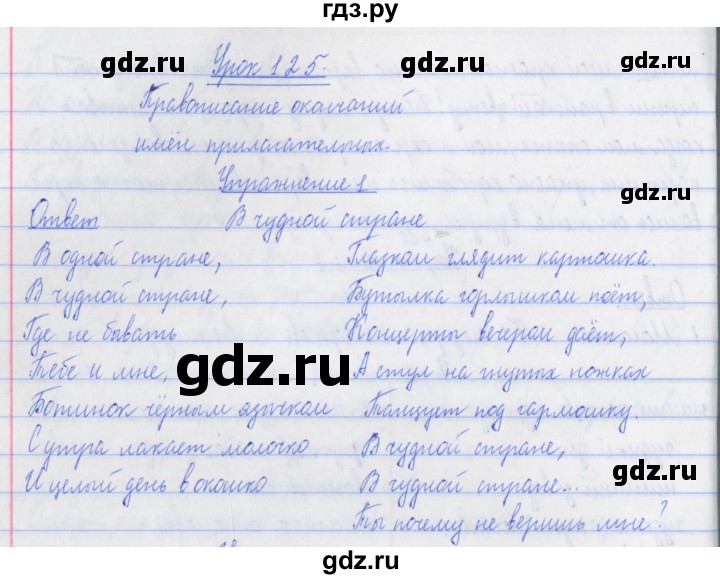 гдз.ру
Урок 125.
Правописание окончаний
имён прилагательных.
Упражнение 1
Ответ
В чудной стране
В одной стране,
В чудной стране,
Где не бывать
Тебе и мне,
Ботинок чёрным язычком
С утра лакает молочко
И целый день в окошко
Глазком глядит картошка.
Бутылка горлышком поёт,
Концерты вечером даёт,
А стул на гнутых ножках
Танцует под гармошку.
В чудной стране,
В чудной стране...
Ты почему не веришь мне?
gdz.ru
gdz.ru
gdz.ru
gdz.ru
gdz.ru
gdz.ru
gdz.ru
gdz.ru
gdz.ru